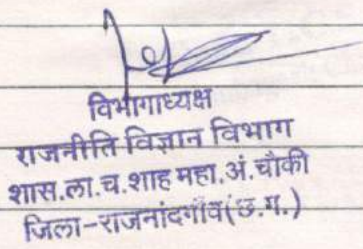 विभागाध्यक्ष
राजनीति विज्ञान विभाग
शास.ला.च.शाह महा.अं.चौकी
जिला-राजनांदगाँव(छ.ग.)